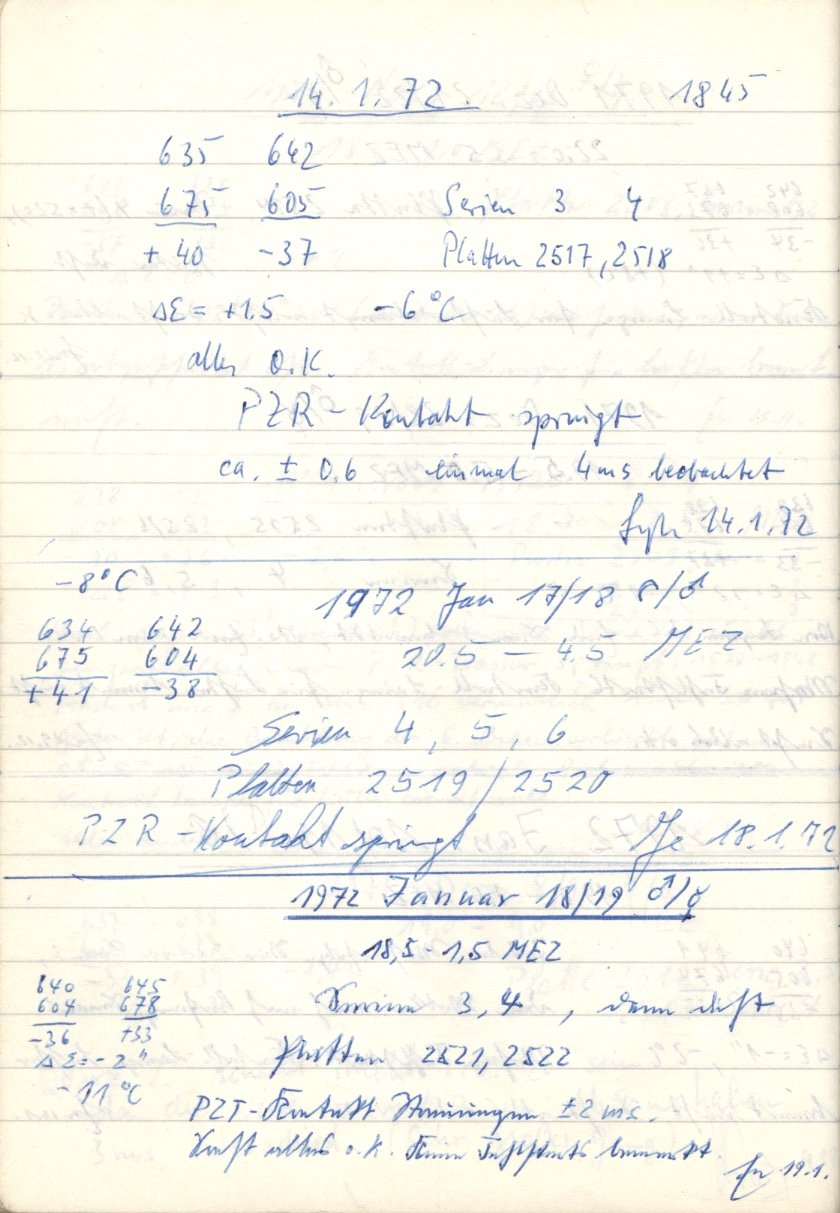 14.1.72. 1845
635 642
675 605 Serien 3 4
+40 -37 Platten 2517, 2518
ΔΣ = +1.5 -6°C
alles O.K.
PZR - Kontakt springt
ca. ± 0.6 einmal 4ms beobachtet
14.1.72
-8°C
1972 Jan 17/18 /♂
634 642
20.5 - 4.5 MEZ
675 604
+41 -38
Serien 4, 5, 6
Platten 2519/2520
PZR - Kontakt springt 18.1.72
1972 Januar 18/19 ♂/☿
18,5 - 1,5 MEZ
640 645
604 678 Serien 3, 4, dann dicht
-36 +33
ΔΣ = -2" Platten 2521, 2522
-11°C
PZT-Kontakt Streuungen ±2 ms.
Sonst alles o.K. Keine Fehlstarts bemerkt.
19.1.